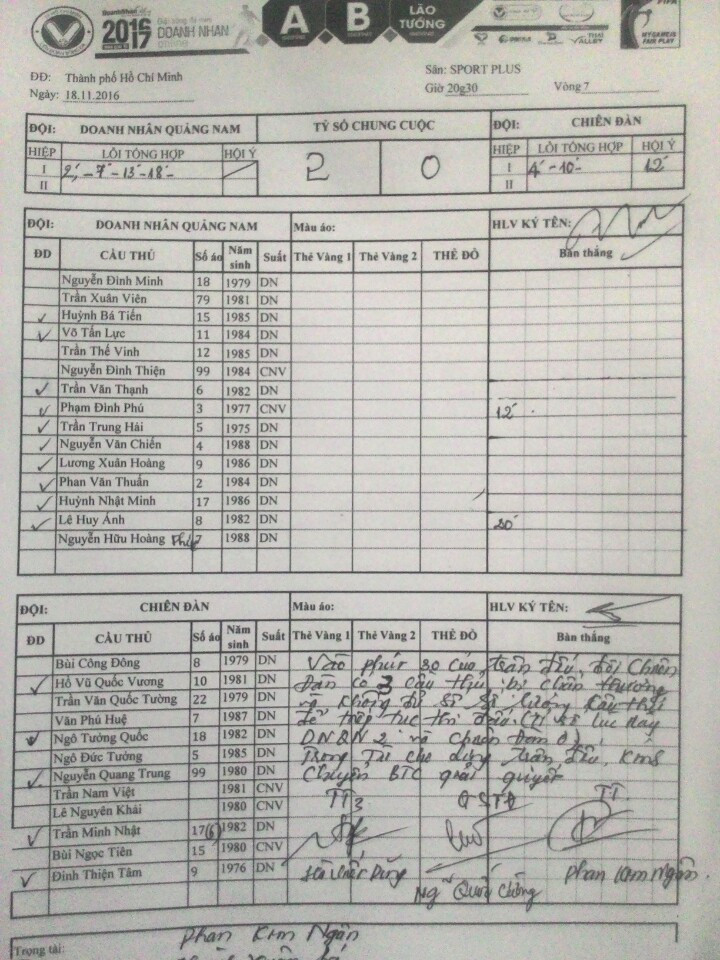 2016
2017
DOANH NHÂN
online
A
B
LÃO
TƯỚNG
THAI
VALLEY
FIFA
MY GAME IS
FAIR PLAY
ĐĐ: Thành phố Hồ Chí Minh
Sân: SPORT PLUS
Ngày: 18.11.2016
Giờ 20g30 Vòng 7
ĐỘI: DOANH NHÂN QUẢNG NAM TỶ SỐ CHUNG CUỘC ĐỘI: CHIÊN ĐÀN
HIỆP LỖI TỔNG HỢP HỘI Ý 2 0 HIỆP LỖI TỔNG HỢP HỘI Ý
I 2' - 7' - 13' - 18' I 4' - 10' 12'
II II
ĐỘI: DOANH NHÂN QUẢNG NAM Màu áo: HLV KÝ TÊN:
ĐD CẦU THỦ Số áo Năm sinh Suất Thẻ Vàng 1 Thẻ Vàng 2 THẺ ĐỎ Bàn thắng
Nguyễn Đình Minh 18 1979 DN
Trần Xuân Viên 79 1981 DN
Huỳnh Bá Tiến 15 1985 DN
Võ Tấn Lực 11 1984 DN
Trần Thế Vinh 12 1985 DN
Nguyễn Đình Thiện 99 1984 CNV
Trần Văn Thạnh 6 1982 DN
Phạm Đình Phú 3 1977 CNV 12'
Trần Trung Hải 5 1975 DN
Nguyễn Văn Chiến 4 1988 DN
Lương Xuân Hoàng 9 1986 DN
Phan Văn Thuấn 2 1984 DN
Huỳnh Nhật Minh 17 1986 DN
Lê Huy Ánh 8 1982 DN 20'
Nguyễn Hữu Hoàng 7 1988 DN
ĐỘI: CHIÊN ĐÀN Màu áo: HLV KÝ TÊN:
ĐD CẦU THỦ Số áo Năm sinh Suất Thẻ Vàng 1 Thẻ Vàng 2 THẺ ĐỎ Bàn thắng
Bùi Công Đông 8 1979 DN Vào phút 30 của trận đấu, đội Chiên
Hồ Vũ Quốc Vương 10 1981 DN Đàn có 3 cầu thủ bị chấn thương
Trần Văn Quốc Tường 22 1979 DN và không đủ số lượng cầu thủ
Văn Phú Huệ 7 1987 DN để tiếp tục thi đấu (tỉ số lúc này
Ngô Tưởng Quốc 18 1982 DN DNQN 2 và Chiên Đàn 0)
Ngô Đức Tưởng 5 1985 DN Trọng Tài cho dừng trận đấu,
Nguyễn Quang Trung 99 1980 DN Chuyển BTC giải quyết
Trần Nam Việt 1981 CNV TT3 GSTĐ TT.
Lê Nguyên Khải 1980 CNV
Trần Minh Nhật 17(6) 1982 DN
Bùi Ngọc Tiên 15 1980 CNV
Đinh Thiện Tâm 9 1976 DN Phan Kim Ngân
Phan Kim Ngân
Trọng tài: